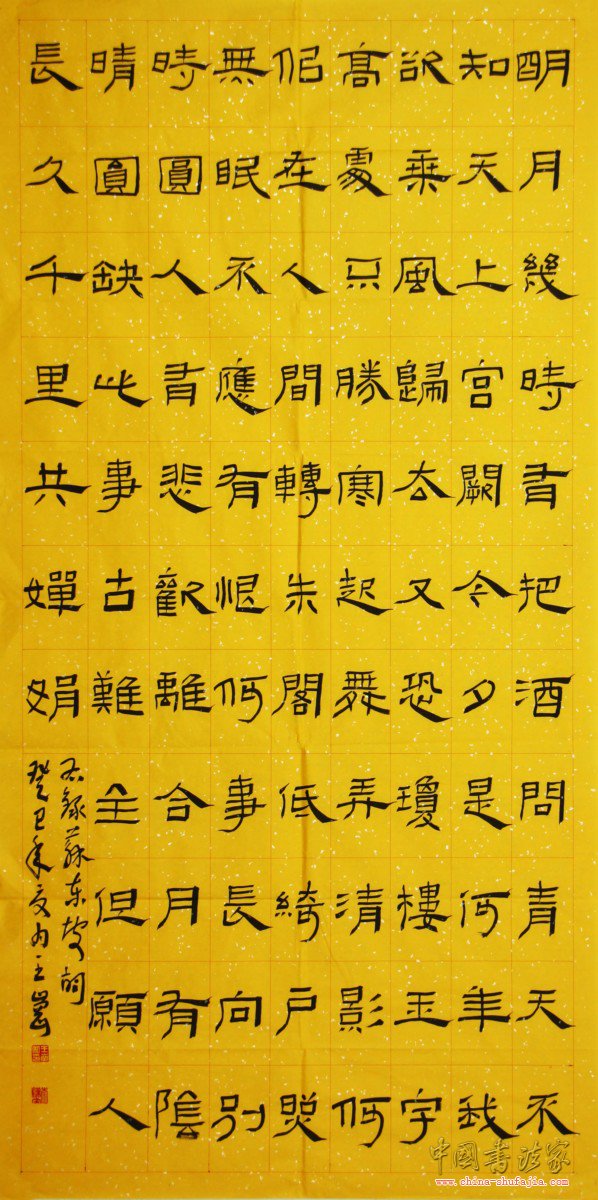 明月幾時有把酒問青天不
知天上宮闕今夕是何年我
欲乘風歸去又恐瓊樓玉宇
高處只勝寒起舞弄清影何
佀在人間轉朱閣低綺戶照
無眠不應有恨何事長向別
時圓人有悲歡離合月有陰
晴圓缺此事古難全但願人
長久千里共嬋娟
右錄蘇東坡詞
癸巳年夏月王
中国书法家
www.china-shufajia.com